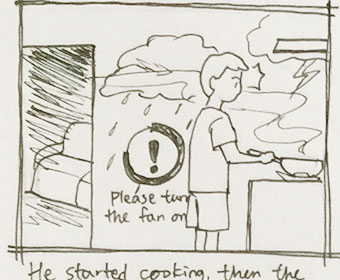 !
Please turn
the fan on
He started cooking, then the